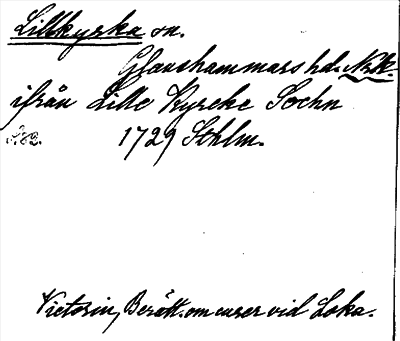 Lillkyrka sn.
Glanshammars hd. Nrk.
ifrån Lille Kyrcke Sochn
S. 82. 1729 Sthlm.
Victorin, Berätt. om curer vid Loka.